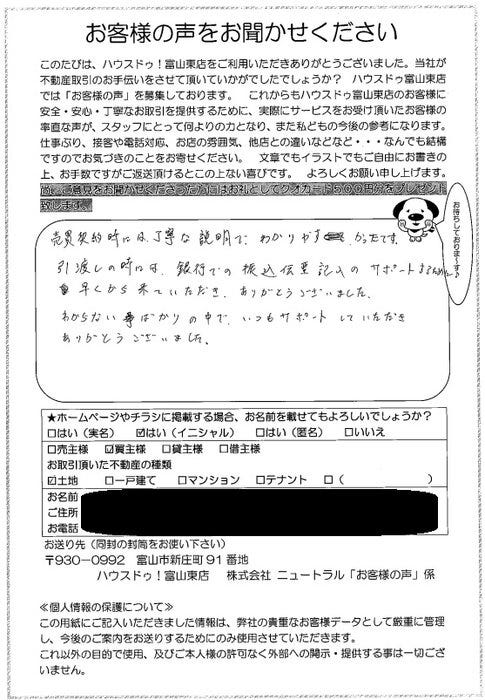 お客様の声をお聞かせください
このたびは、ハウスドゥ！富山東店をご利用いただきありがとうございました。当社が
不動産取引のお手伝いをさせて頂いていかがでしたでしょうか？　ハウスドゥ富山東店
では「お客様の声」を募集しております。　これからもハウスドゥ富山東店のお客様に
安全・安心・丁寧なお取引を提供するために、実際にサービスをお受け頂いたお客様の
率直な声が、スタッフにとって何よりの力となり、また私どもの今後の参考になります。
仕事ぶり、接客や電話対応、お店の雰囲気、他店との違いなどなど・・・なんでも結構
ですのでお気づきのことをお寄せください。　文章でもイラストでもご自由にお書きの
上、お手数ですがご返送頂けるとこの上ない喜びです。　よろしくお願い申し上げます。
尚、ご意見をお聞かせくださった方にはお礼としてクオカード500円分をプレゼント
致します。
お待ちしておりま～す♪
売買契約時には、丁寧な説明で、わかりやすかったです。
引渡しの時には、銀行での振込伝票記入のサポートするために
早くから来ていただき、ありがとうございました。
わからない事ばかりの中で、いつもサポートしていただき
ありがとうございました。
★ホームページやチラシに掲載する場合、お名前を載せてもよろしいでしょうか？
□はい（実名）　☑はい（イニシャル）　□はい（匿名）　□いいえ
□売主様　☑買主様　□貸主様　□借主様
お取引頂いた不動産の種類
☑土地　□一戸建て　□マンション　□テナント　□（　　　　　　）
お名前
ご住所
お電話
お送り先（同封の封筒をお使い下さい）
〒930-0992　富山市新庄町91番地
ハウスドゥ！富山東店　株式会社 ニュートラル「お客様の声」係
≪個人情報の保護について≫
この用紙にご記入いただきました情報は、弊社の貴重なお客様データとして厳重に管理
し、今後のご案内をお送りするためにのみ使用させていただきます。
これ以外の目的で使用、及びご本人様の許可なく外部への開示・提供する事は一切ござ
いません。